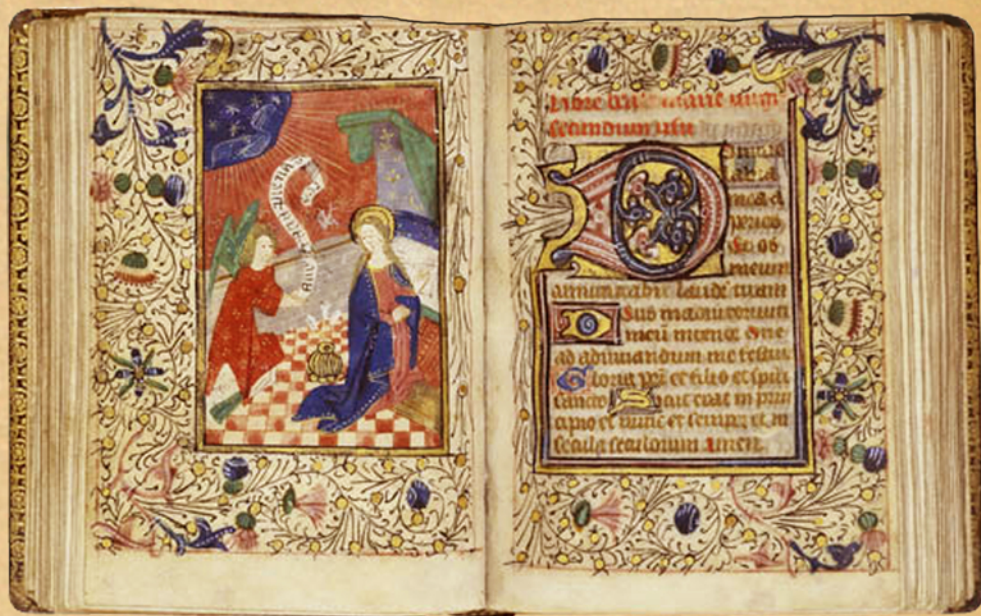 marie virgi
secundum usu
Domine
labia
mea a
peries
et os
meum
annunciabit laudē tuam
Deus in adiutoriu
meū intende Dne
ad adiuuandum me festin
Gloria pri et filio et spiri
sancto Sicut erat in prin
cipio et nunc et semper et in
secula seculorum amen